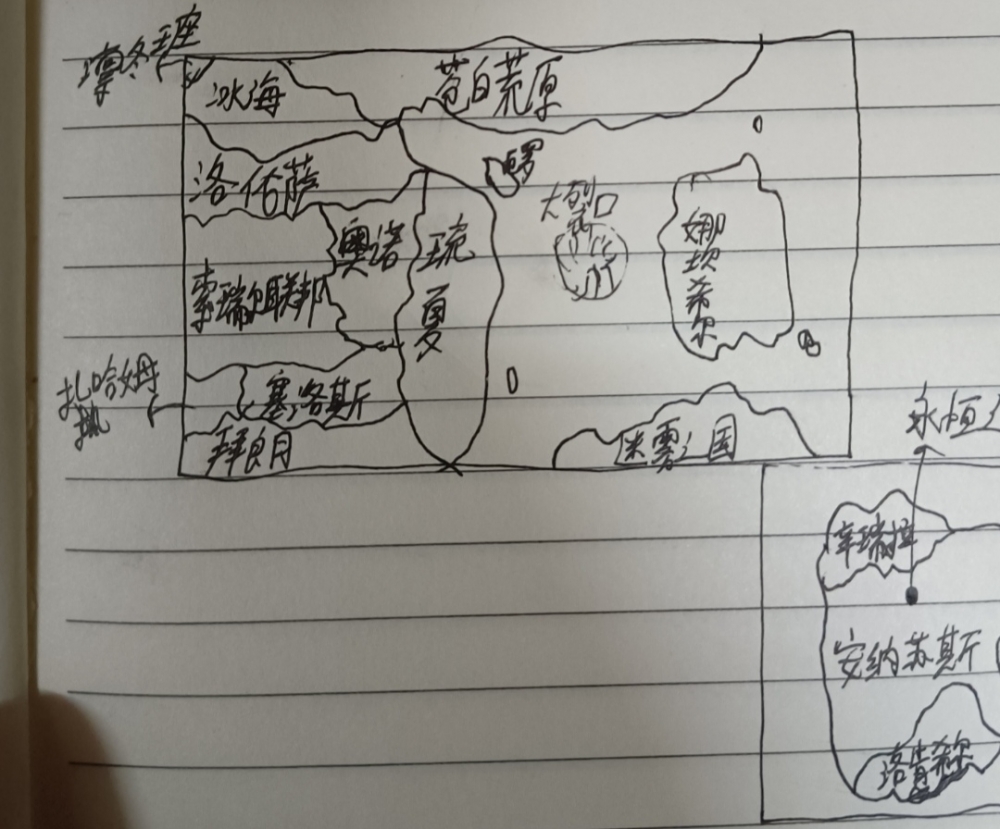 凛冬王座
冰海
苍白荒原
洛佑萨
大裂口
奥诺
琉夏
娜坎希尔
索瑞尔联邦
扎哈姆
塞洛斯
拜良月
迷雾之国
永恒
辛瑞拉
安纳苏斯
洛肯希尔